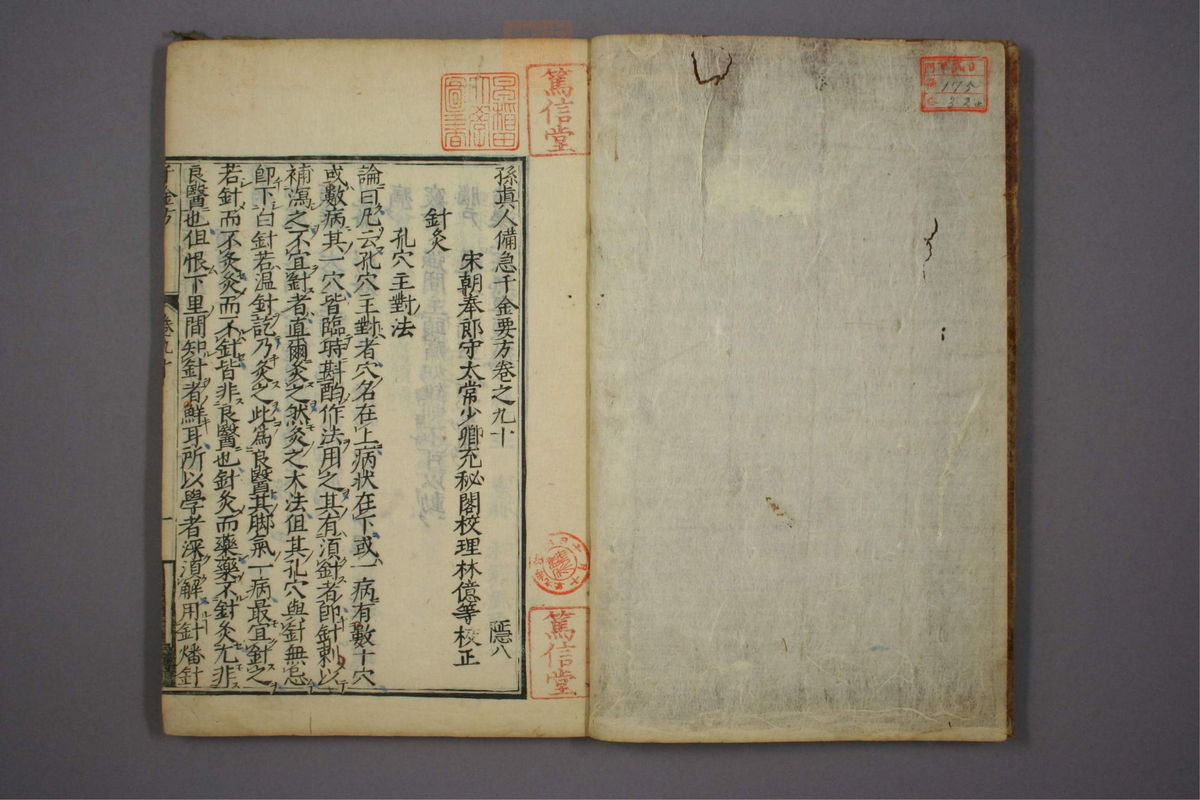 孫眞人備急千金要方卷之九十
隱八
宋朝奉郎守太常少卿充秘閣校理林億等校正
針灸
孔穴主對法
論曰凡云孔穴主對者穴名在上病狀在下或一病有數十穴
或數病其一穴皆臨時斟酌作法用之其有湏針者即針刺以
補瀉之不宜針者直爾灸之然灸之大法但其孔穴與針無忌
即下白針若温針訖乃灸之此爲良醫其脚氣一病最宜針之
若針而不灸灸而不針皆非良醫也針灸而藥藥不針灸尤非
良醫也但恨下里間知針者鮮耳所以學者深湏解用針燔針
千金方
卷九十
一
篤信堂
篤信堂
175